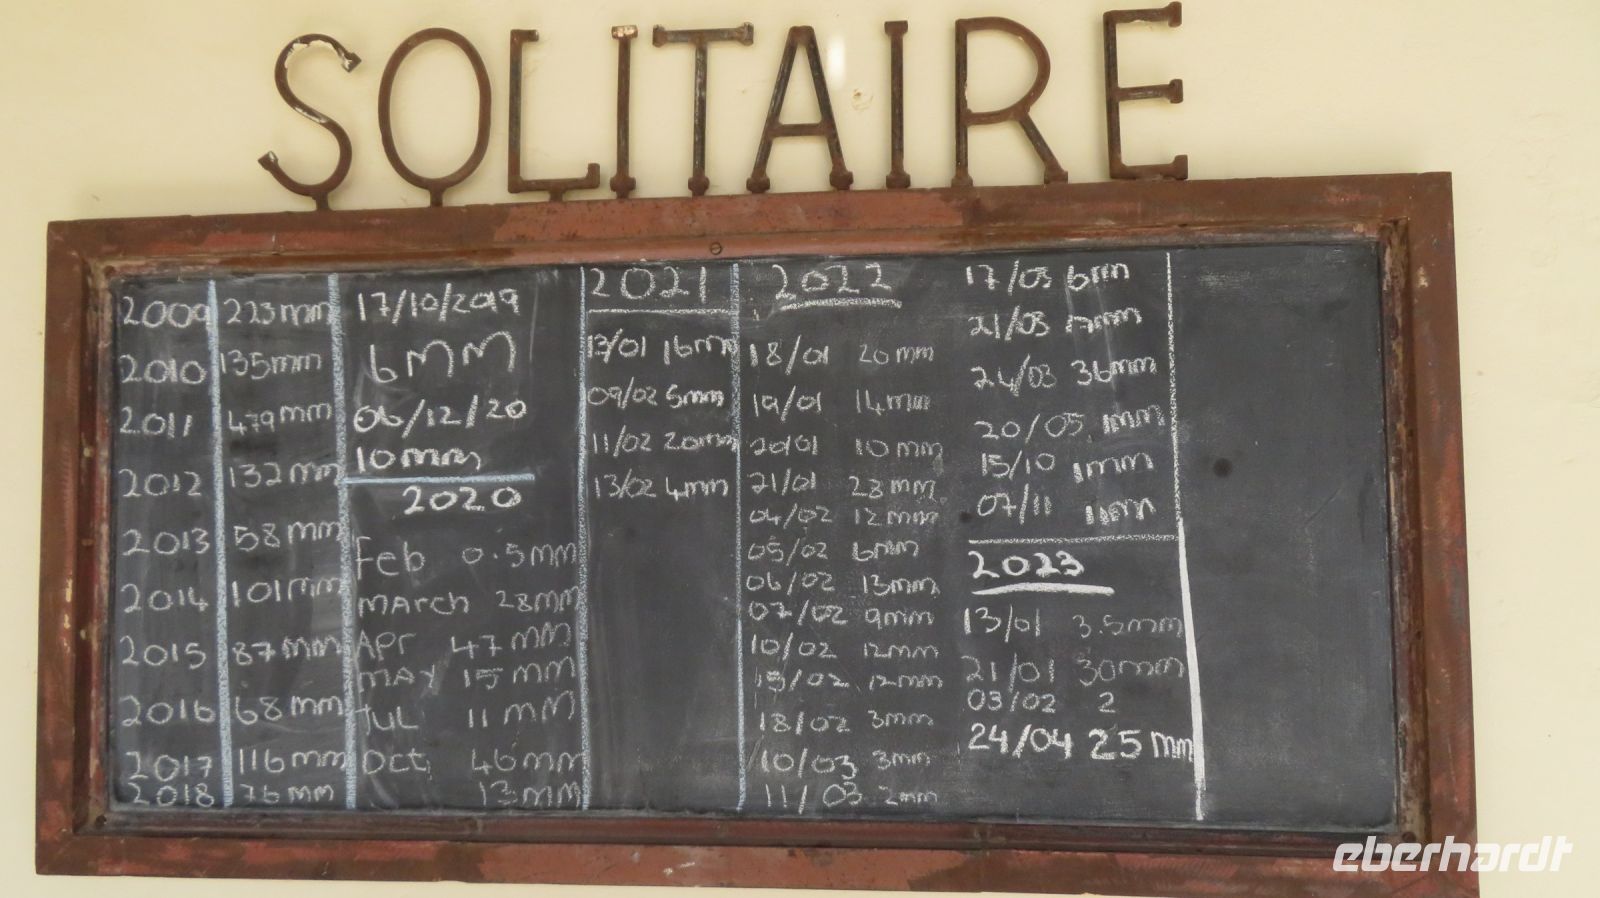 SOLITAIRE
2009 223mm
2010 135mm
2011 479mm
2012 132mm
2013 58mm
2014 101mm
2015 87mm
2016 68mm
2017 116mm
2018 76mm
17/10/2019
6MM
06/12/20
10mm
2020
Feb 0.5mm
MArch 28mm
Apr 47mm
MAY 15mm
Jul 11mm
Oct 46mm
13mm
2021
13/01 16mm
09/02 5mm
11/02 20mm
13/02 4mm
2022
18/01 20mm
19/01 14mm
20/01 10mm
21/01 23mm
04/02 12mm
05/02 6mm
06/02 13mm
07/02 9mm
10/02 12mm
15/02 12mm
18/02 3mm
10/03 3mm
11/03 2mm
17/03 6mm
21/03
24/03 36mm
20/05 1mm
15/10 1mm
07/11
2023
13/01 3.5mm
21/01 30mm
03/02 2
24/04 25mm
eberhardt